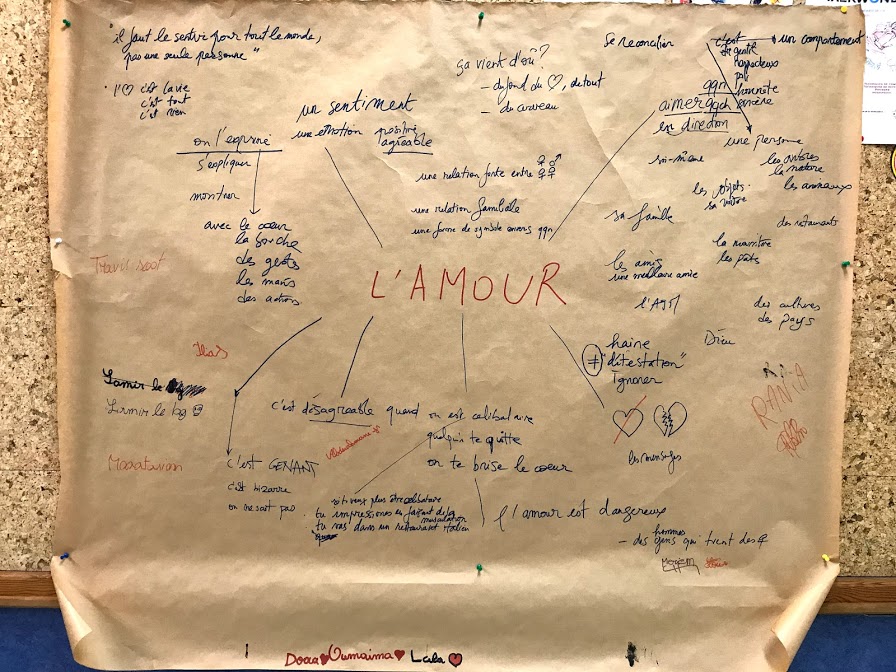 "il faut le sentir pour tout le monde,
pas une seule personne"
l'♡ c'est la vie
c'est tout
c'est rien
ça vient d'où?
- du fond du ♡, de tout
- du cerveau
Se reconcilier
c'est
gentil
poli
honnête
sincère
un comportement
un sentiment
une émotion positive
agréable
on l'exprime
s'expliquer
montrer
avec le coeur
la bouche
des gests
les mains
des actions
une relation forte entre ♀♂
♀♀
une relation familiale
une forme de symbole envers qqn
qqn
aimer qqch
en direction
soi-même
sa famille
les amis
une meilleure amie
une personne
les arbres
la nature
les animaux
les objets
sa voiture
des restaurants
la nourriture
les pâtes
des cultures
des pays
Dieu
L'AMOUR
≠
haine
"détestation"
Ignorer
les mensonges
RANIA
c'est désagreable quand
on est celibataire
quelqu'un te quitte
on te brise le coeur
c'est GENANT
c'est bizarre
on ne sait pas
si tu veux plus être celibataire
tu impressiones en faisant de la
musculation
tu vas dans un restaurant italien
l'amour est dangereux
hommes
- des gens qui tuent des ♀
Meryem
Doaa ♥ Oumaima ♥ Laila ♥